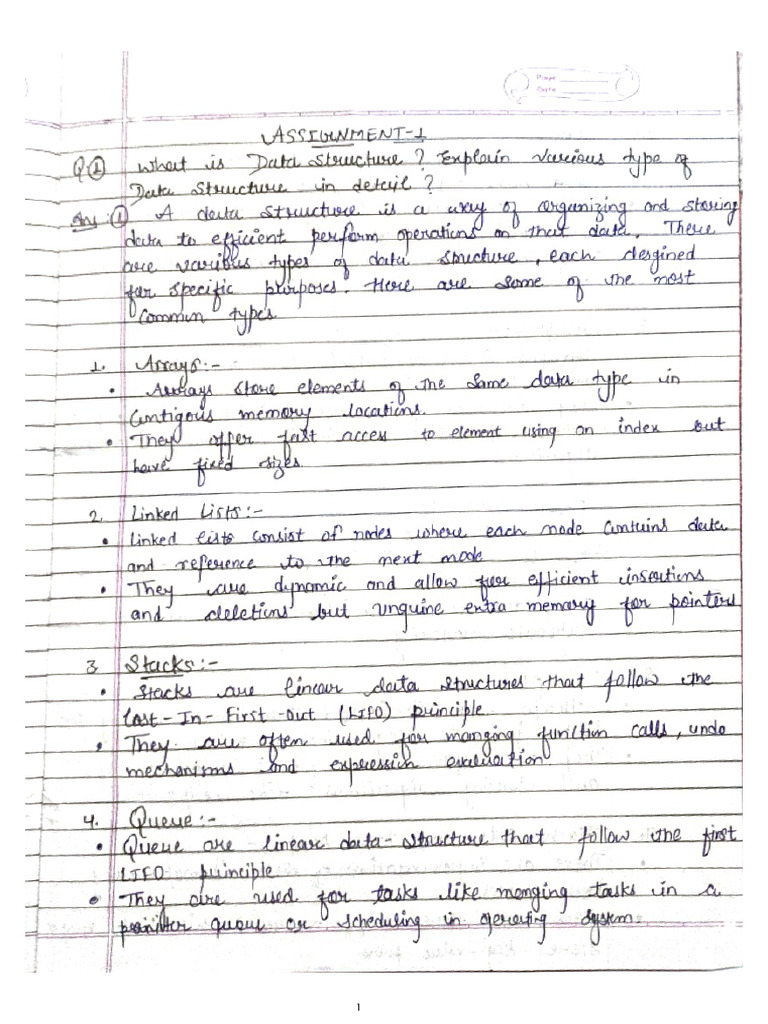 Page
Date
ASSIGNMENT-1
Q.① What is Data Structure? Explain various type of
Data Structure in detail?
Ans:① A data structure is a way of organizing and storing
data to efficient perform operations on that data. There
are various types of data structure, each desgined
for specific purposes. Here are some of the most
Common types
1. Arrays:-
• Arrays store elements of the same data type in
Contigous memory locations.
• They offer fast access to element using an index but
have fixed sizes
2. Linked Lists:-
• Linked lists consist of nodes where each node contains data
and reference to the next node
• They are dynamic and allow for efficient insertions
and deletions but unquine extra memory for pointers
3 Stacks:-
• Stacks are linear data structures that follow the
Last-In-First-Out (LIFO) principle
• They are often used for manging function calls, undo
mechanisms and expression evaluation
4. Queue:-
• Queue are linear data-structure that follow the first
LIFO principle
• They are used for tasks like manging tasks in a
queue or scheduling in operating system.
1